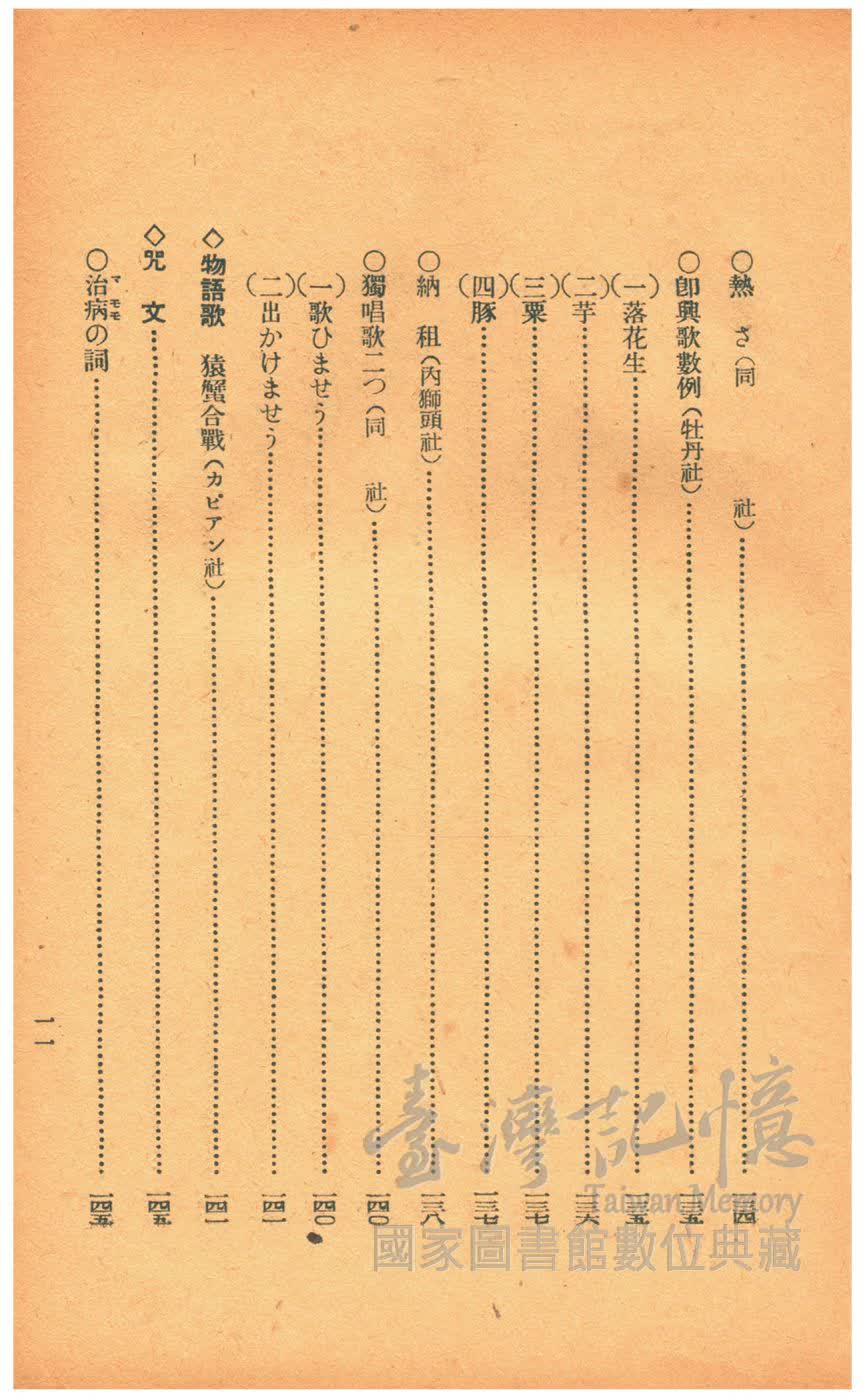 ○熱さ(同社)……一三四
○卽興歌數例(牡丹社)……一三五
(一)落花生……一三五
(二)芋……一三六
(三)粟……一三七
(四)豚……一三七
○納租(內獅頭社)……一三八
○獨唱歌二つ(同社)……一四〇
(一)歌ひませう……一四〇
(二)出かけませう……一四一
◇物語歌 猿蟹合戰(カピアン社)……一四一
◇咒文……一四五
○治病の詞……一四五
マモモ
一一
臺灣記憶
Taiwan Memory
國家圖書館數位典藏